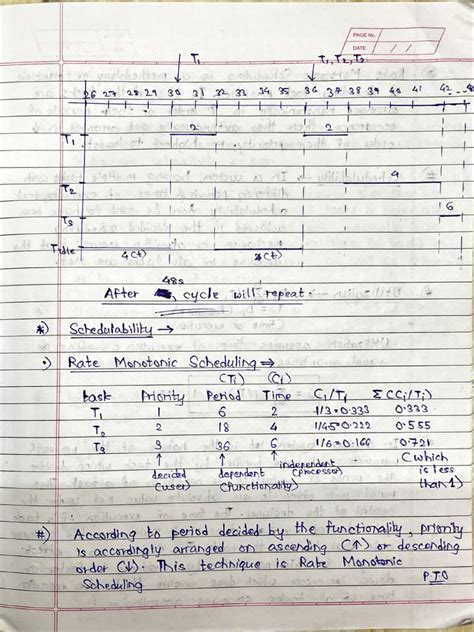 PAGE No.
DATE / /
T₁
T₁, T₂, T₃
26 27 28 29 30 31 32 33 34 35 36 37 38 39 40 41 42
T₁ 2 2
T₂ 4
T₃ 6
Tidle 4(t) 4(t)
48s
After , cycle will repeat.
*) Schedulability →
•) Rate Monotonic Scheduling ⇒
(Ti) (Ci)
task Priority Period Time C₁/T₁ Σ(Ci/Ti)
T₁ 1 6 2 1/3=0.333 0.333
T₂ 2 18 4 1/4.5=0.222 0.555
T₃ 3 36 6 1/6=0.166 0.721
↑ ↑ ↑ (which
decided dependent independent is less
(user) (functionality) (processor) than 1)
#) According to period decided by the functionality, priority
is accordingly arranged on ascending (↑) or descending
order (↓). This technique is Rate Monotonic
Scheduling P.T.O